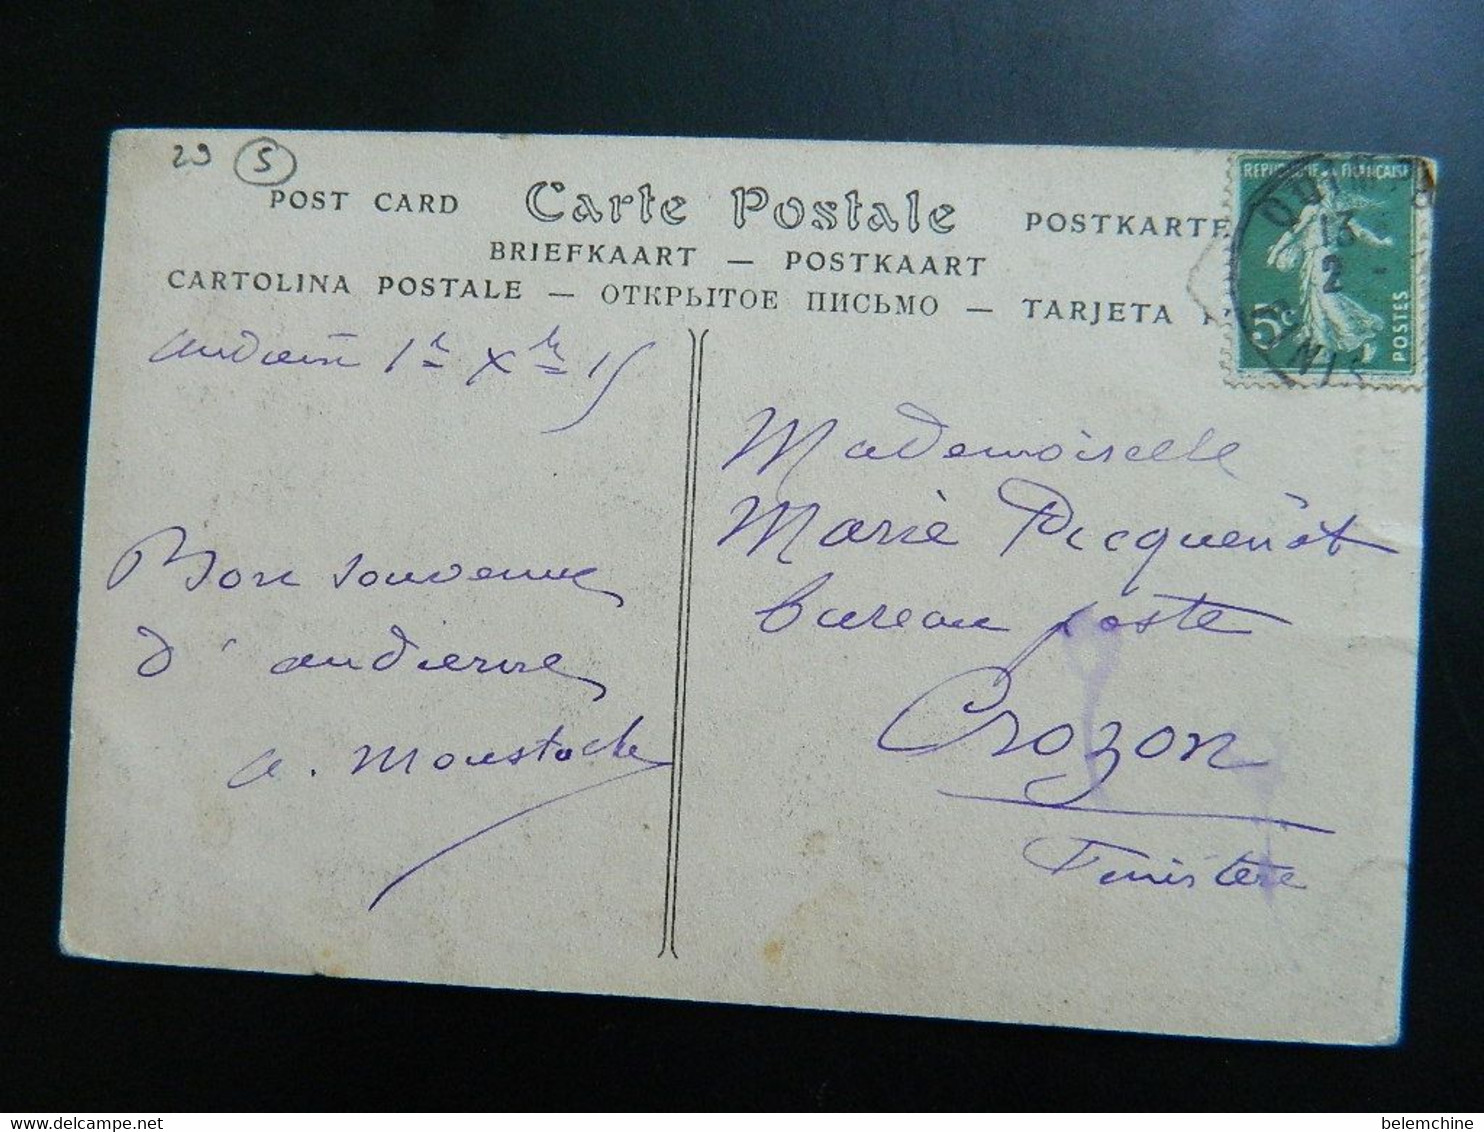 29 5
POST CARD Carte Postale POSTKARTE
BRIEFKAART — POSTKAART
CARTOLINA POSTALE — ОТКРЫТОЕ ПИСЬМО — TARJETA
REPUBLIQUE FRANÇAISE
13
2
5c
POSTES
1er Xbre 15
Bon souvenir
d'audierne
a. Moustache
Mademoiselle
Marie Picquenot
bureau poste
Crozon
Finistère
belemchine